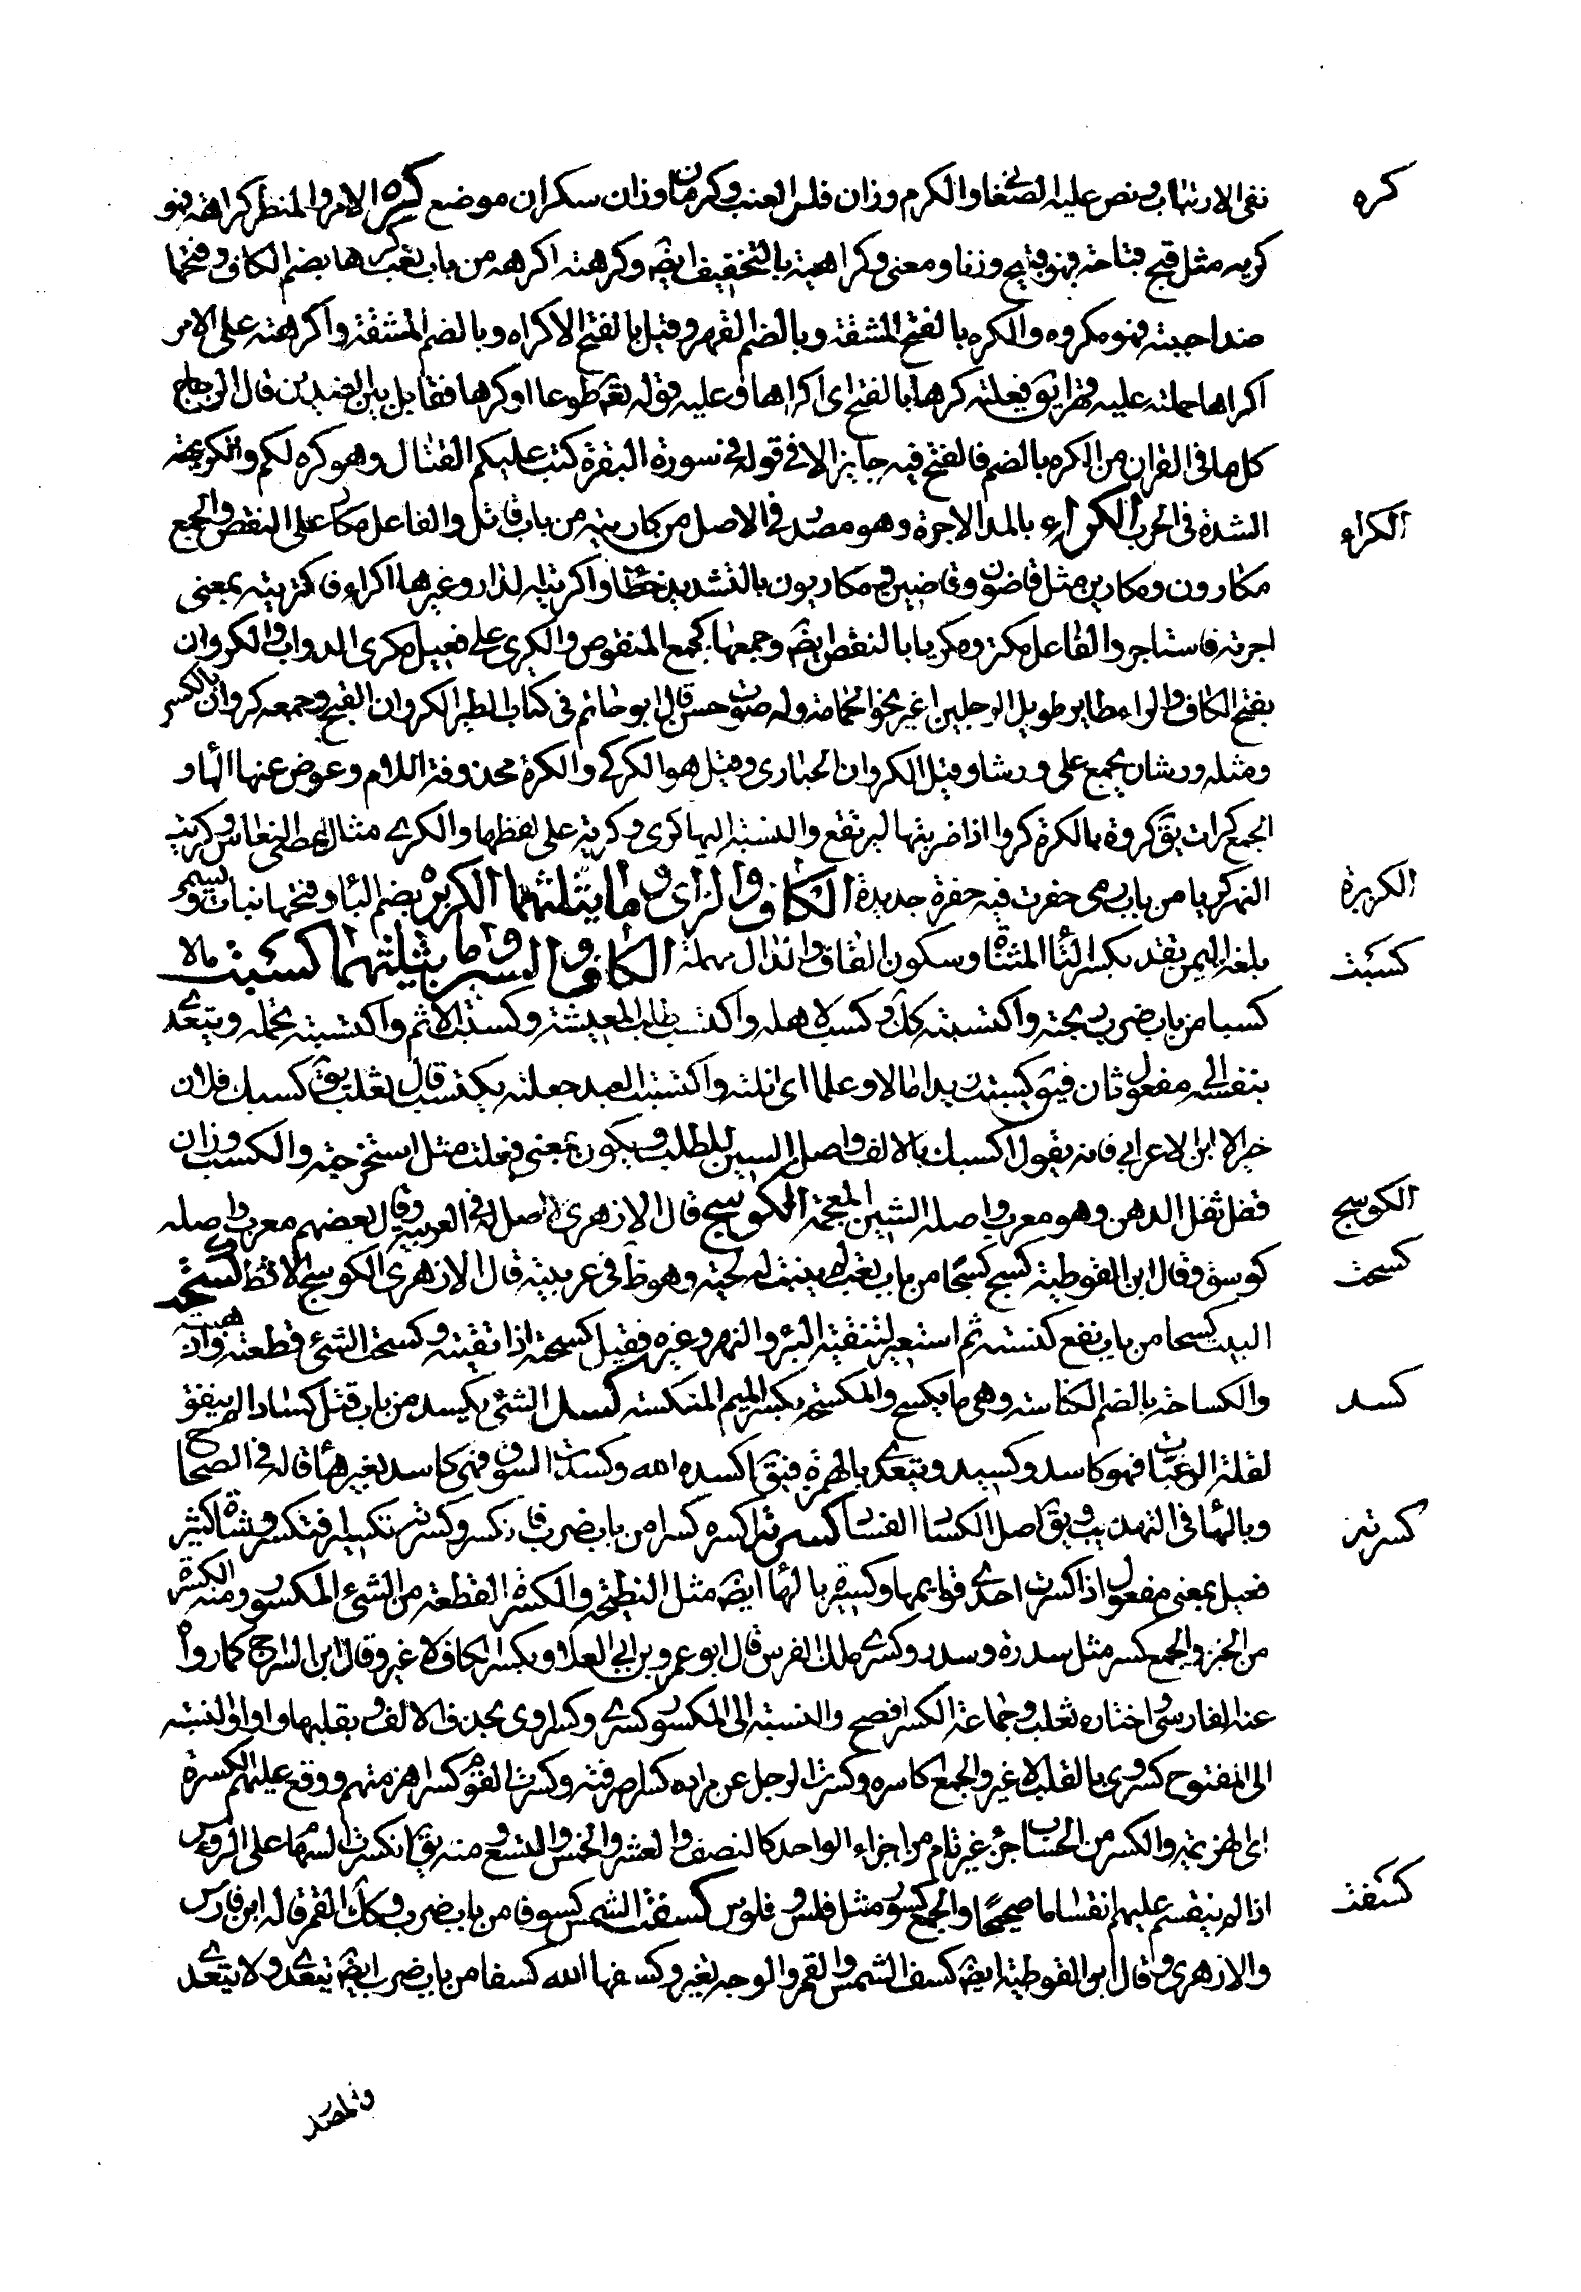 نفى الارتياب ونص عليه الصغانى والكرم وزان فلس العنب وكرمان وزان سكران موضع كره الامر والمنظر كراهة فهو
كره
كريه مثل قبح قباحة فهو قبيح وزنا ومعنى وكراهية بالتخفيف ايضَ وكرهته اكرهه من باب تعب كرها بضم الكاف وفتحها
ضد احببته فهو مكروه والكره بالفتح المشقة وبالضم القهر وقيل بالفتح الاكراه وبالضم المشقة واكرهته على الامر
اكراها حملته عليه قهرا يق فعلته كرها بالفتح اى اكراها وعليه قوله تعَ طوعا او كرها فقابل بين الضدين قال الزجاج
كل ما فى القران من الكره بالضم فالفتح فيه جايز الا فى قوله فى سورة البقرة كتب عليكم القتال وهو كره لكم والكريهة
الشدة فى الحرب الكراء بالمد الاجرة وهو مصدر فى الاصل من كاريته من باب قاتل والفاعل مكار على النقص والجمع
الكراء
مكارون ومكارين مثل قاضون وقاضين ومكاريون بالتشديد خطا واكريته الدار وغيرها اكراء فاكتريته بمعنى
اجرته فاستاجر والفاعل مكتر ومكر بالنقص ايضَ وجمعها كجمع المنقوص والكرى على فعيل مكرى الدواب والكروان
بفتح الكاف والراء طاير طويل الرجلين اغبر نحو الحمامة وله صوت حسن قال ابو حاتم فى كتاب الطير الكروان القبج وجمعه كروان بالكسر
ومثله ورشان يجمع على ورشان وقيل الكروان الحبارى وقيل هو الكركى والكرة محذوفة اللام وعوض عنها الهاء و
الجمع كرات يق كروت بالكرة كروا اذا ضربتها لترتفع والنسبة اليها كرى وكرية على لفظها والكرى مثال العصا النعاس وكريت
النهر كريا من باب رمى حفرت فيه حفرة جديدة الكاف والزاى وما يثلثهما الكزبرة بضم الباء وفتحها نبات وتسمى
الكزبرة
بلغة اليمن تقدة بكسر التاء المثناة وسكون القاف والدال مهملة الكاف والسين وما يثلثهما كسبت مالا
كسبت
كسبا من باب ضرب ربحته واكتسبته كك وكسب لاهله واكتسب طلب المعيشة وكسب الاثم واكتسبته تحمله ويتعدى
بنفسه الى مفعول ثان فيق كسبت زيدا مالا وعلما اى انلته واكسبت العبد جعلته يكتسب قال ثعلب يق كسبك فلان
خيرا الا ابن الاعرابى فانه يقول اكسبك بالالف واصل السين للطلب ويكون بمعنى فعلت مثل استخرجته والكسب وزان
قفل ثفل الدهن وهو معرب واصله الشين المعجمة الكوسج قال الازهرى لا اصل له فى العربية وقال بعضهم معرب واصله
الكوسج
كوسق وقال ابن القوطية كسج كسجا من باب تعب لم ينبت له لحية وهو ظ فى عربيته قال الازهرى الكوسج الاثط كسحت
كسحت
البيت كسحا من باب نفع كنسته ثم استعير لتنقية البئر والنهر وغيره فقيل كسحته اذا نقيته وكسحت الشئ قطعته واذهبته
والكساحة بالضم الكناسة وهى ما يكسح والمكسحة بكسر الميم المكنسة كسد الشئ يكسد من باب قتل كسادا لم ينفق
كسد
لقلة الرغبات فهو كاسد وكسيد ويتعدى بالهمزة فيقَ اكسده الله وكسدت السوق فهى كاسد بغير هاء قاله فى الصحاح
وبالهاء فى التهذيب ويق اصل الكساد الفساد كسرته اكسره كسرا من باب ضرب فانكسر وكسرته تكسيرا فتكسر وشاة كسير
كسرته
فعيل بمعنى مفعول اذا كسرت احدى قوايمها وكسيرة بالهاء ايضَ مثل النطيحة والكسرة القطعة من الشئ المكسور ومنه الكسرة
من الخبز والجمع كسر مثل سدرة وسدر وكسرى ملك الفرس قال ابو عمرو بن ابى العلاء بكسر الكاف لا غير وقال ابن السراج كما رواه
عنه الفارسى واختاره ثعلب وجماعة الكسر افصح والنسبة الى المكسور كسرى وكسروى بحذف الالف وبقلبها واوا والنسبة
الى المفتوح كسروى بالقلب لا غير والجمع اكاسره وكسرت الرجل عن مراده كسرا صرفته وكسرت القوم كسرا هزمتهم ووقع عليهم الكسرة
اى الهزيمة والكسر من الحساب جزء غير تام من اجزاء الواحد كالنصف والعشر والخمس والتسع ومنه يق انكسرت السهام على الرؤس
اذا لم ينقسم عليهم انقساما صحيحا والجمع كسور مثل فلس وفلوس كسفت الشمس كسوفا من باب ضرب وكك القمر قاله ابن فارس
كسفت
والازهرى وقال ابن القوطية ايضَ كسف الشمس والقمر والوجه تغير وكسفها الله كسفا من باب ضرب ايضَ يتعدى ولا يتعدى
والمصدر